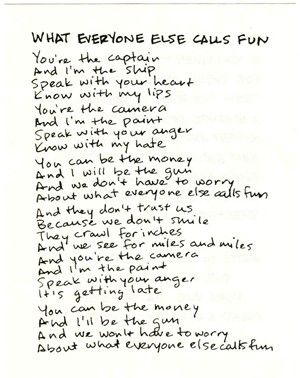 WHAT EVERYONE ELSE CALLS FUN
You're the captain
And I'm the ship
Speak with your heart
Know with my lips
You're the camera
And I'm the paint
Speak with your anger
Know with my hate
You can be the money
And I will be the gun
And we don't have to worry
About what everyone else calls fun
And they don't trust us
Because we don't smile
They crawl for inches
And we see for miles and miles
And you're the camera
And I'm the paint
Speak with your anger
It's getting late
You can be the money
And I'll be the gun
And we won't have to worry
About what everyone else calls fun